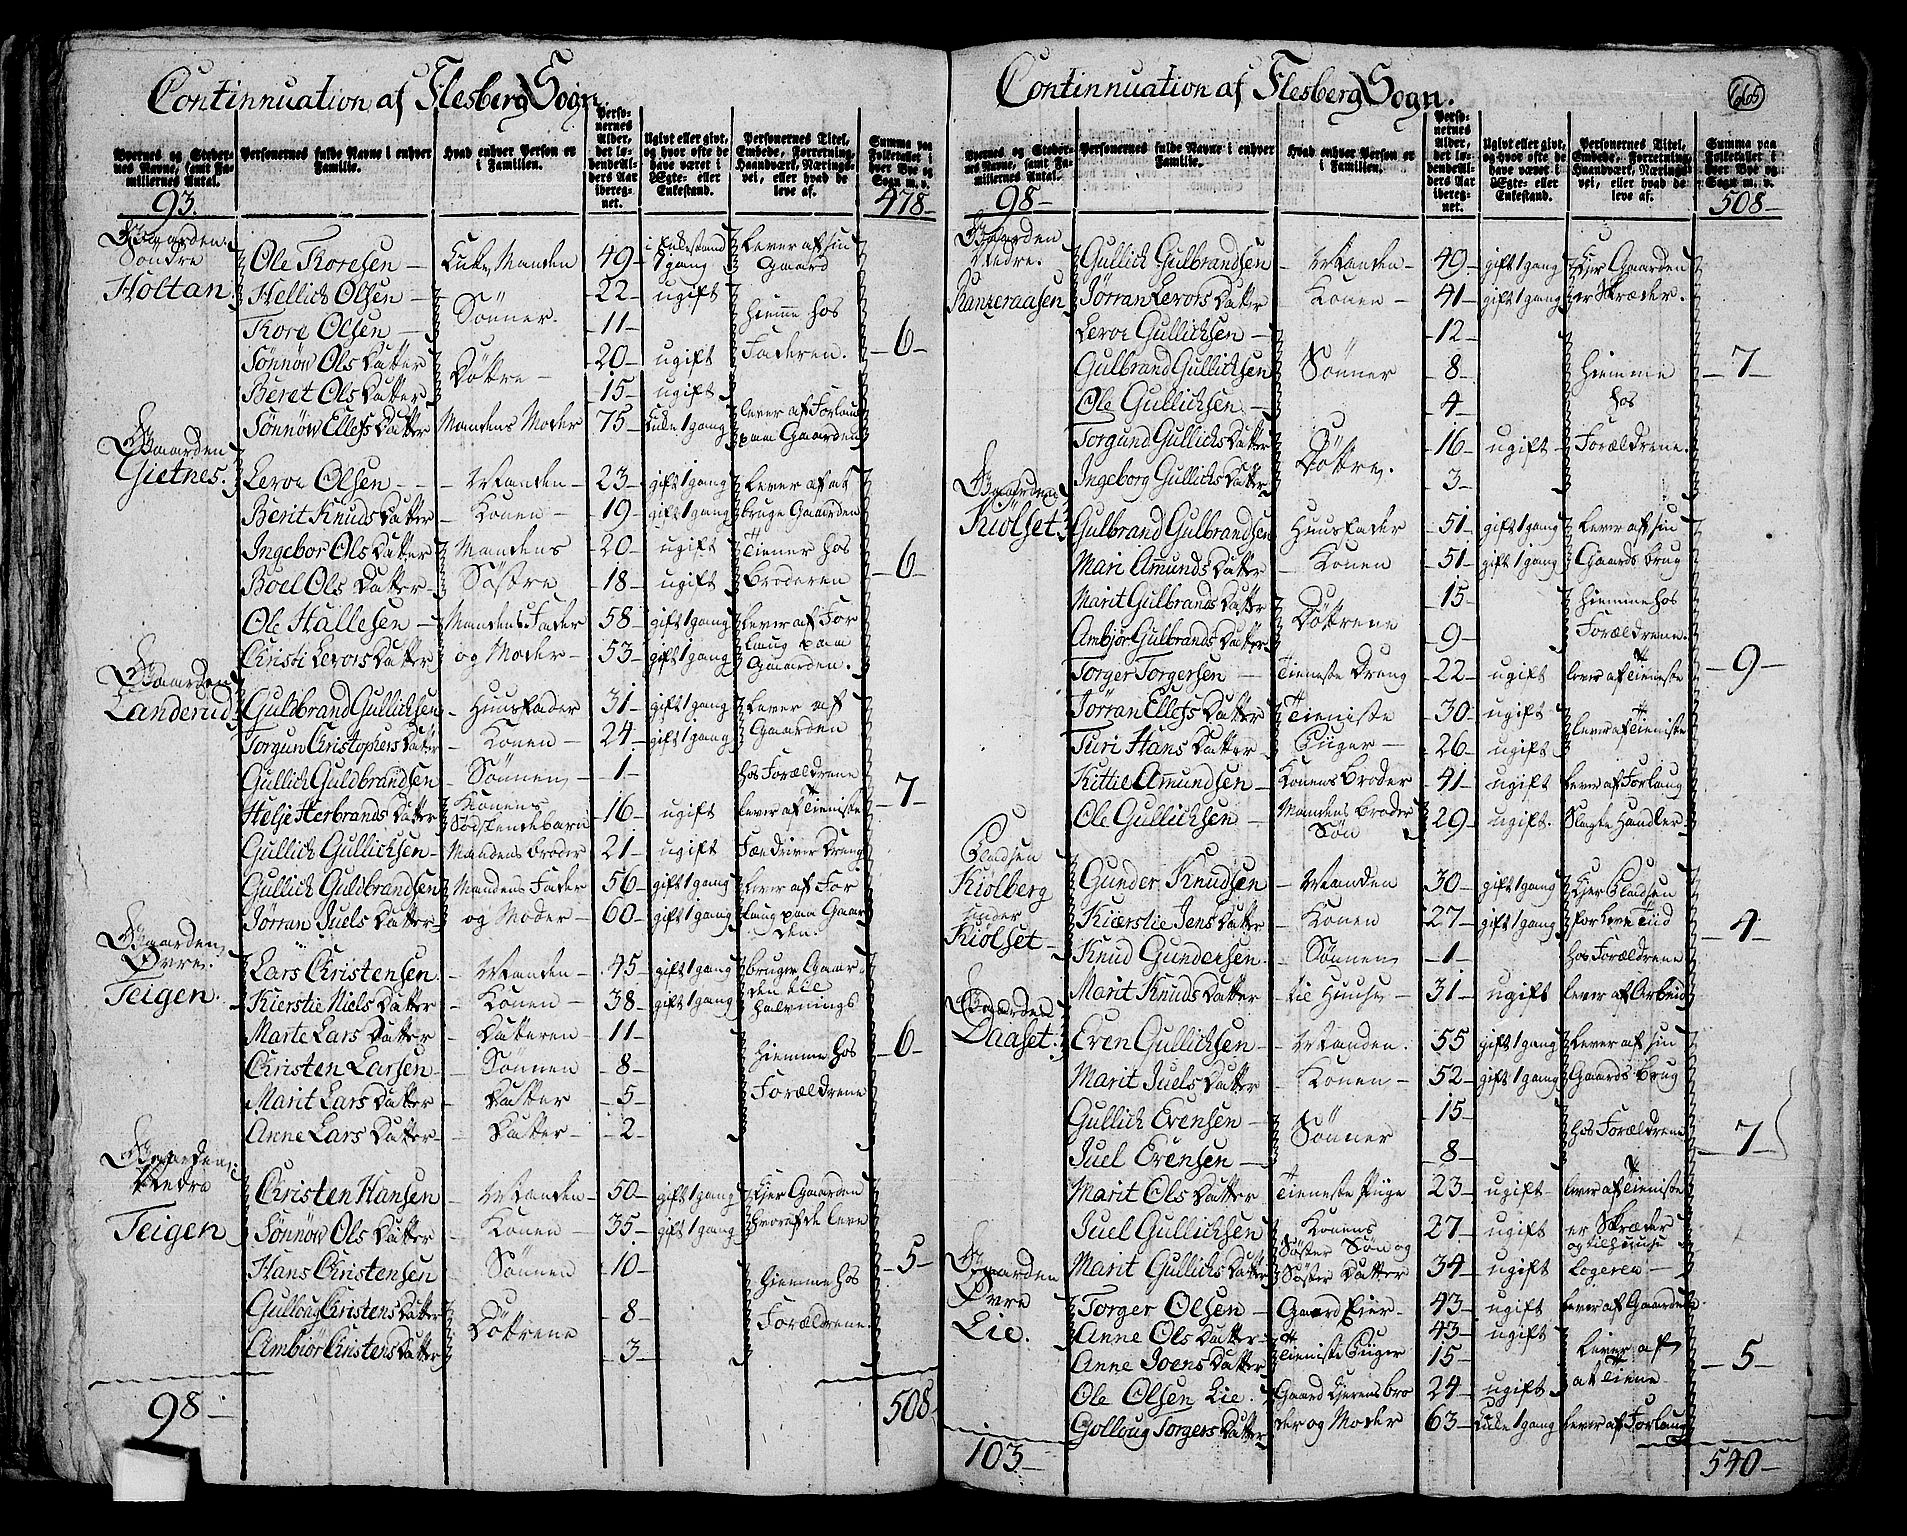 Continnuation af Flesberg Sogn.
Byernes og Stedernes Navne, samt Familiernes Antal.
Personernes fulde Navne i enhver Familie.
Hvad enhver Person er i Familien.
Personernes Alder, det løbende Alders Aar iberegnet.
Ugivt eller givt, og hvor ofte de have været i Ægte- eller Enkestand.
Personernes Titel, Embede, Forretning, Haandværk, Næringsvei, eller hvad de leve af.
Summa paa Folketallet i hver Bye og Sogn m. v.
93. 478-
Gaarden Søndre Holtan.
Ole Toresen - Enke Manden 49 - i Enkestand 1 gang Lever af sin Gaard
Hellich Olsen - Sønner. 22 - ugift hiemme hos
Tore Olsen - 11 - Faderen. 6-
Sønnøw Ols Datter Døttre - 20 - ugift
Beret Ols Datter 15 - ugift
Sønnøw Ellefs Datter Mandens Moder 75 - Enke 1 gang lever af Forlaug paa Gaarden
Gaarden Gietnes.
Levor Olsen - - Manden - 23 - gift 1 gang Lever af at
Berit Knuds Datter - Konen - 19 - gift 1 gang bruge Gaarden
Ingebor Ols Datter Mandens 20 - ugift Tiener hos
Boel Ols Datter - Søstre 18 - ugift Broderen 6-
Ole Hallesen - Mandens Fader 58 - gift 1 gang lever af For
Christi Levors Datter og Moder - 53 - gift 1 gang laug paa Gaarden.
Gaarden Landerud
Guldbrand Gullichsen - Huusfader 31 - gift 1 gang Lever af
Torgun Christophers Datter - Konen - 24 - gift 1 gang Gaarden
Gullich Guldbrandsen - Sønnen - 1 - hos Forældrene
Helje Herbrands Datter Konens Sødskendebarn 16 - ugift lever af Tieniste 7-
Gullich Gullichsen - Mandens Broder 21 - ugift Fædriver Dreng
Gullich Guldbrandsen Mandens Fader 56 - gift 1 gang lever af For
Jørran Juels Datter - og Moder - 60 - gift 1 gang laug paa Gaarden.
Gaarden Øvre Teigen.
Lars Christensen. - Manden - 45 gift 1 gang bruger Gaar
Kierstie Niels Datter - Konen - 38 - gift 1 gang den til halvnings
Marte Lars Datter - Datteren - 11 -
Christen Larsen - - Sønnen - 8 - hiemme hos 6-
Marit Lars Datter - Datter - 5 - Forældrene
Anne Lars Datter - - Datter - - 2 -
Gaarden Nedre Teigen
Christen Hansen - Manden - 50 - gift 1 gang Ejer Gaarden
Sønnøw Ols Datter - Konen - 35 - gift 1 gang hvoraf de leve
Hans Christensen - Sønnen - 10 - hiemme hos 5-
Gulloug Christens Datter Døttrene 8 - Forældrene.
Ambiør Christens Datter 3 -
98- 508.
Continnuation af Flesberg Sogn. 665
Byernes og Stedernes Navne, samt Familiernes Antal.
Personernes fulde Navne i enhver Familie.
Hvad enhver Person er i Familien.
Personernes Alder, det løbende Alders Aar iberegnet.
Ugivt eller givt, og hvor ofte de have været i Ægte- eller Enkestand.
Personernes Titel, Embede, Forretning, Haandværk, Næringsvei, eller hvad de leve af.
Summa paa Folketallet i hver Bye og Sogn m. v.
98- 508-
Gaarden Nedre.
Gullich Gulbrandsen - Manden - 49 - gift 1 gang Ejer Gaarden
Jørran Levors Datter - Konen - 41 - gift 1 gang er Skræder.
Levor Gullichsen - 12 -
Gulbrand Gullichsen Sønner 8 - hiemme 7-
Ole Gullichsen - 4 - hos
Torgund Gullichs Datter Døttre. 16 - ugift Forældrene.
Ingeborg Gullichs Datter 3 -
Gaarden Kiølset
Gulbrand Gulbrandsen Huusfader 51 - gift 1 gang Lever af sin
Mari Amunds Datter - Konen 51 - gift 1 gang Gaards brug
Marit Gulbrands Datter Døttrene 15 - hiemme hos
Ambjør Gulbrands Datter 9 - Forældrene.
Torger Torgersen - Tieneste Dreng 22 - ugift lever af Tieniste 9-
Jørran Ellefs Datter Tieniste 30 - ugift lever af Tieniste
Turi Hans Datter - Piiger - 26 - ugift
Kittil Amundsen - Konens Broder 41 - ugift lever af Forlaug
Ole Gullichsen - Mandens Broder Søn 29 - ugift. Slagte Handler
Pladsen Kiølberg under Kiølset -
Gunder Knudsen - Manden 30 - gift 1 gang Ejer Pladsen
Kierstie Jens Datter - Konen 27 - gift 1 gang for leve Tiid 4-
Knud Gundersen. - Sønnen - 1 - hos Forældrene
Marit Knuds Datter til Huuse - 31 - ugift lever af Arbeid
Gaarden Daaset.
Even Gullichsen - Manden. 55 gift 1 gang Lever af sin
Marit Juels Datter - Konen - 52 - gift 1 gang Gaards Brug
Gullich Evensen - Sønner 15 - hos Forældrene
Juel Evensen - 8 - 7-
Marit Ols Datter Tieneste Piige 23 - ugift lever af Tieniste
Juel Gullichsen Konens Søster Søn og 27 - ugift er Skræder og til Huuse
Marit Gullichs Datter Søster Datter 34 - ugift Logeren -
Gaarden Øvre Lie.
Torger Olsen - Gaard Ejer - 43 - ugift lever af Gaarden
Anne Ols Datter - Tieniste Piiger 43 - ugift Lever af
Anne Joens Datter 15 - at Tiene 5-
Ole Olsen Lie. Gaard Ejerens Bro 24 - ugift
Golloug Torgers Datter der og Moder 63 - Enke 1 gang lever af Forlaug
103- 540-